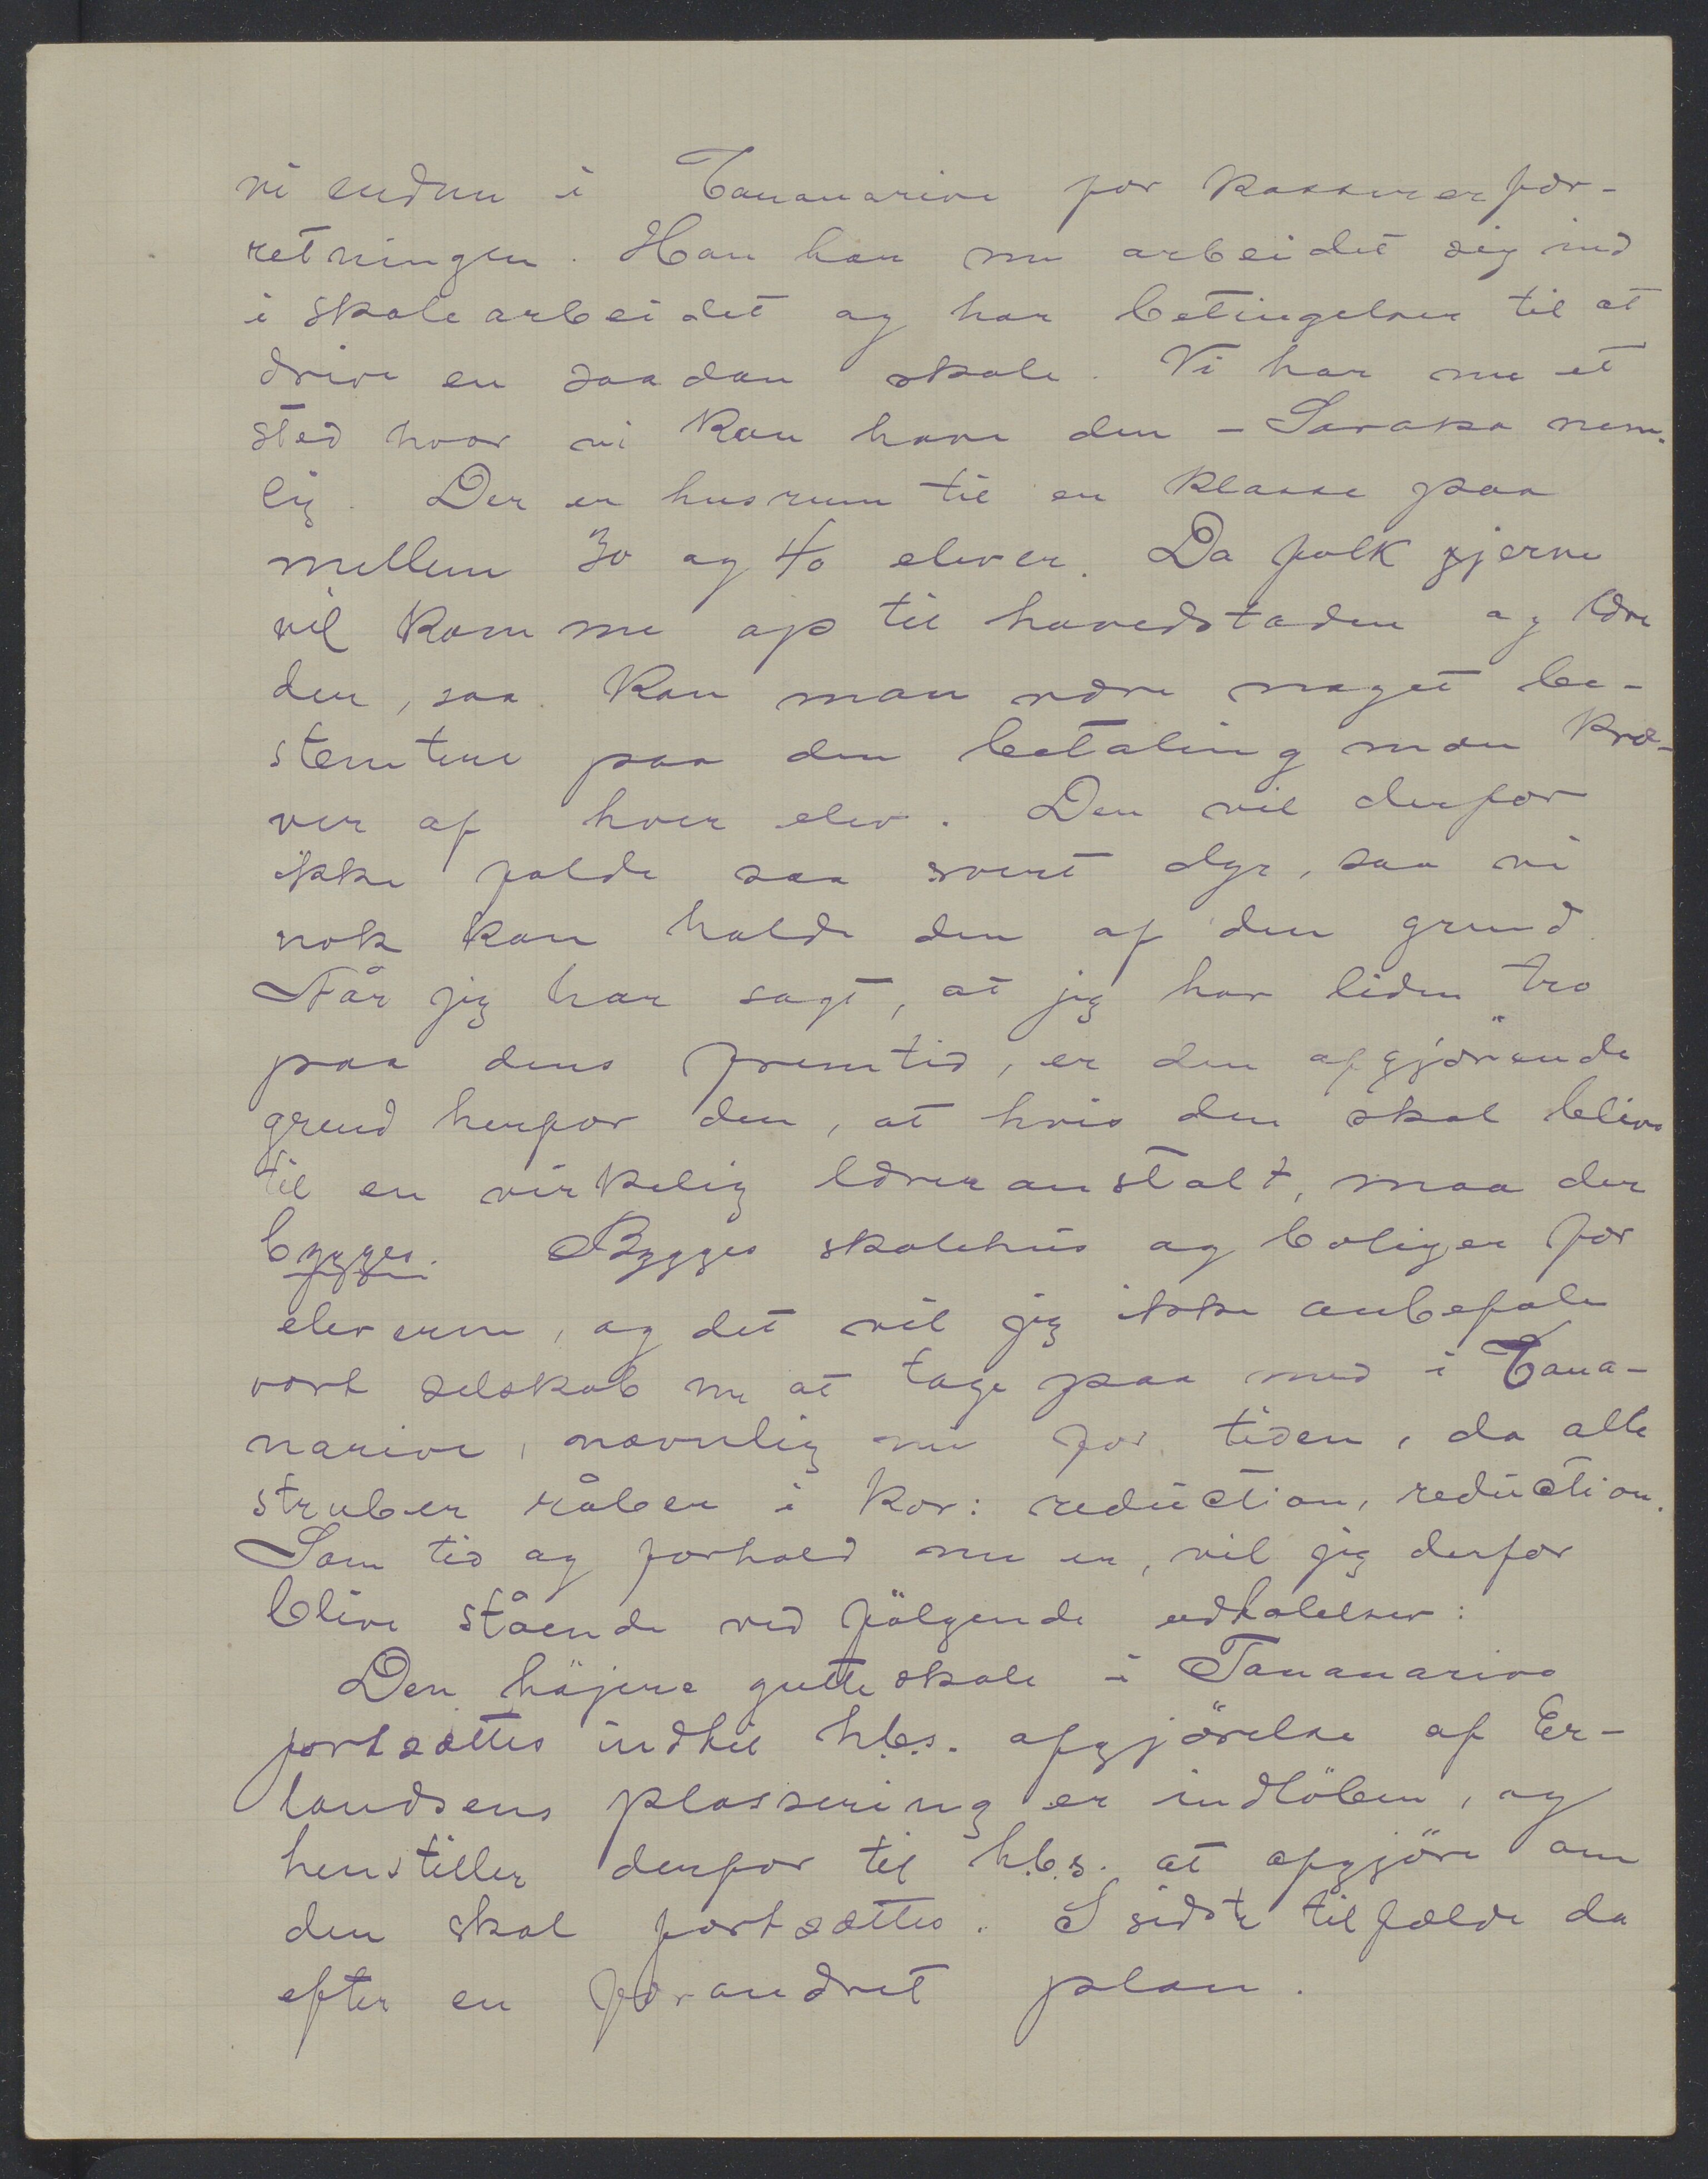 vi endnu i Tananarivo for kassererfor-
retningen. Han har nu arbeidet sig ind
i skolearbeidet og har betingelser til at
drive en saadan skole. Vi har nu et
sted hvor vi kan have den – Saraka nem-
lig. Der er husrum til en klasse paa
mellem 30 og 40 elever. Da folk gjerne
vil komme op til hovedstaden og lære
der, saa kan man være noget be-
stemtere paa den betaling man kræ-
ver af hver elev. Den vil derfor
ikke falde saa svert dyr, saa vi
nok kan holde den af den grund.
Når jeg har sagt, at jeg har liden tro
paa dens fremtid, er den afgjörende
grund herfor den, at hvis den skal blive
til en virkelig læreranstalt, maa der
bygges. Bygges skolehus og boliger for
eleverne, og det vil jeg ikke anbefale
vort selskab nu at tage paa med i Tana-
narivo, navnlig nu for tiden, da alle
struber råber i kor: reduction, reduction.
Som tid og forhold nu er, vil jeg derfor
blive stående ved fölgende udtalelser:
Den höjere gutteskole i Tananarivo
fortsættes indtil h.b.s. afgjörelse af Er-
landsens plassering er indlöben, og
henstiller derfor til h.b.s. at afgjöre om
den skal fortsættes. I sidste tilfælde da
efter en forandret plan.